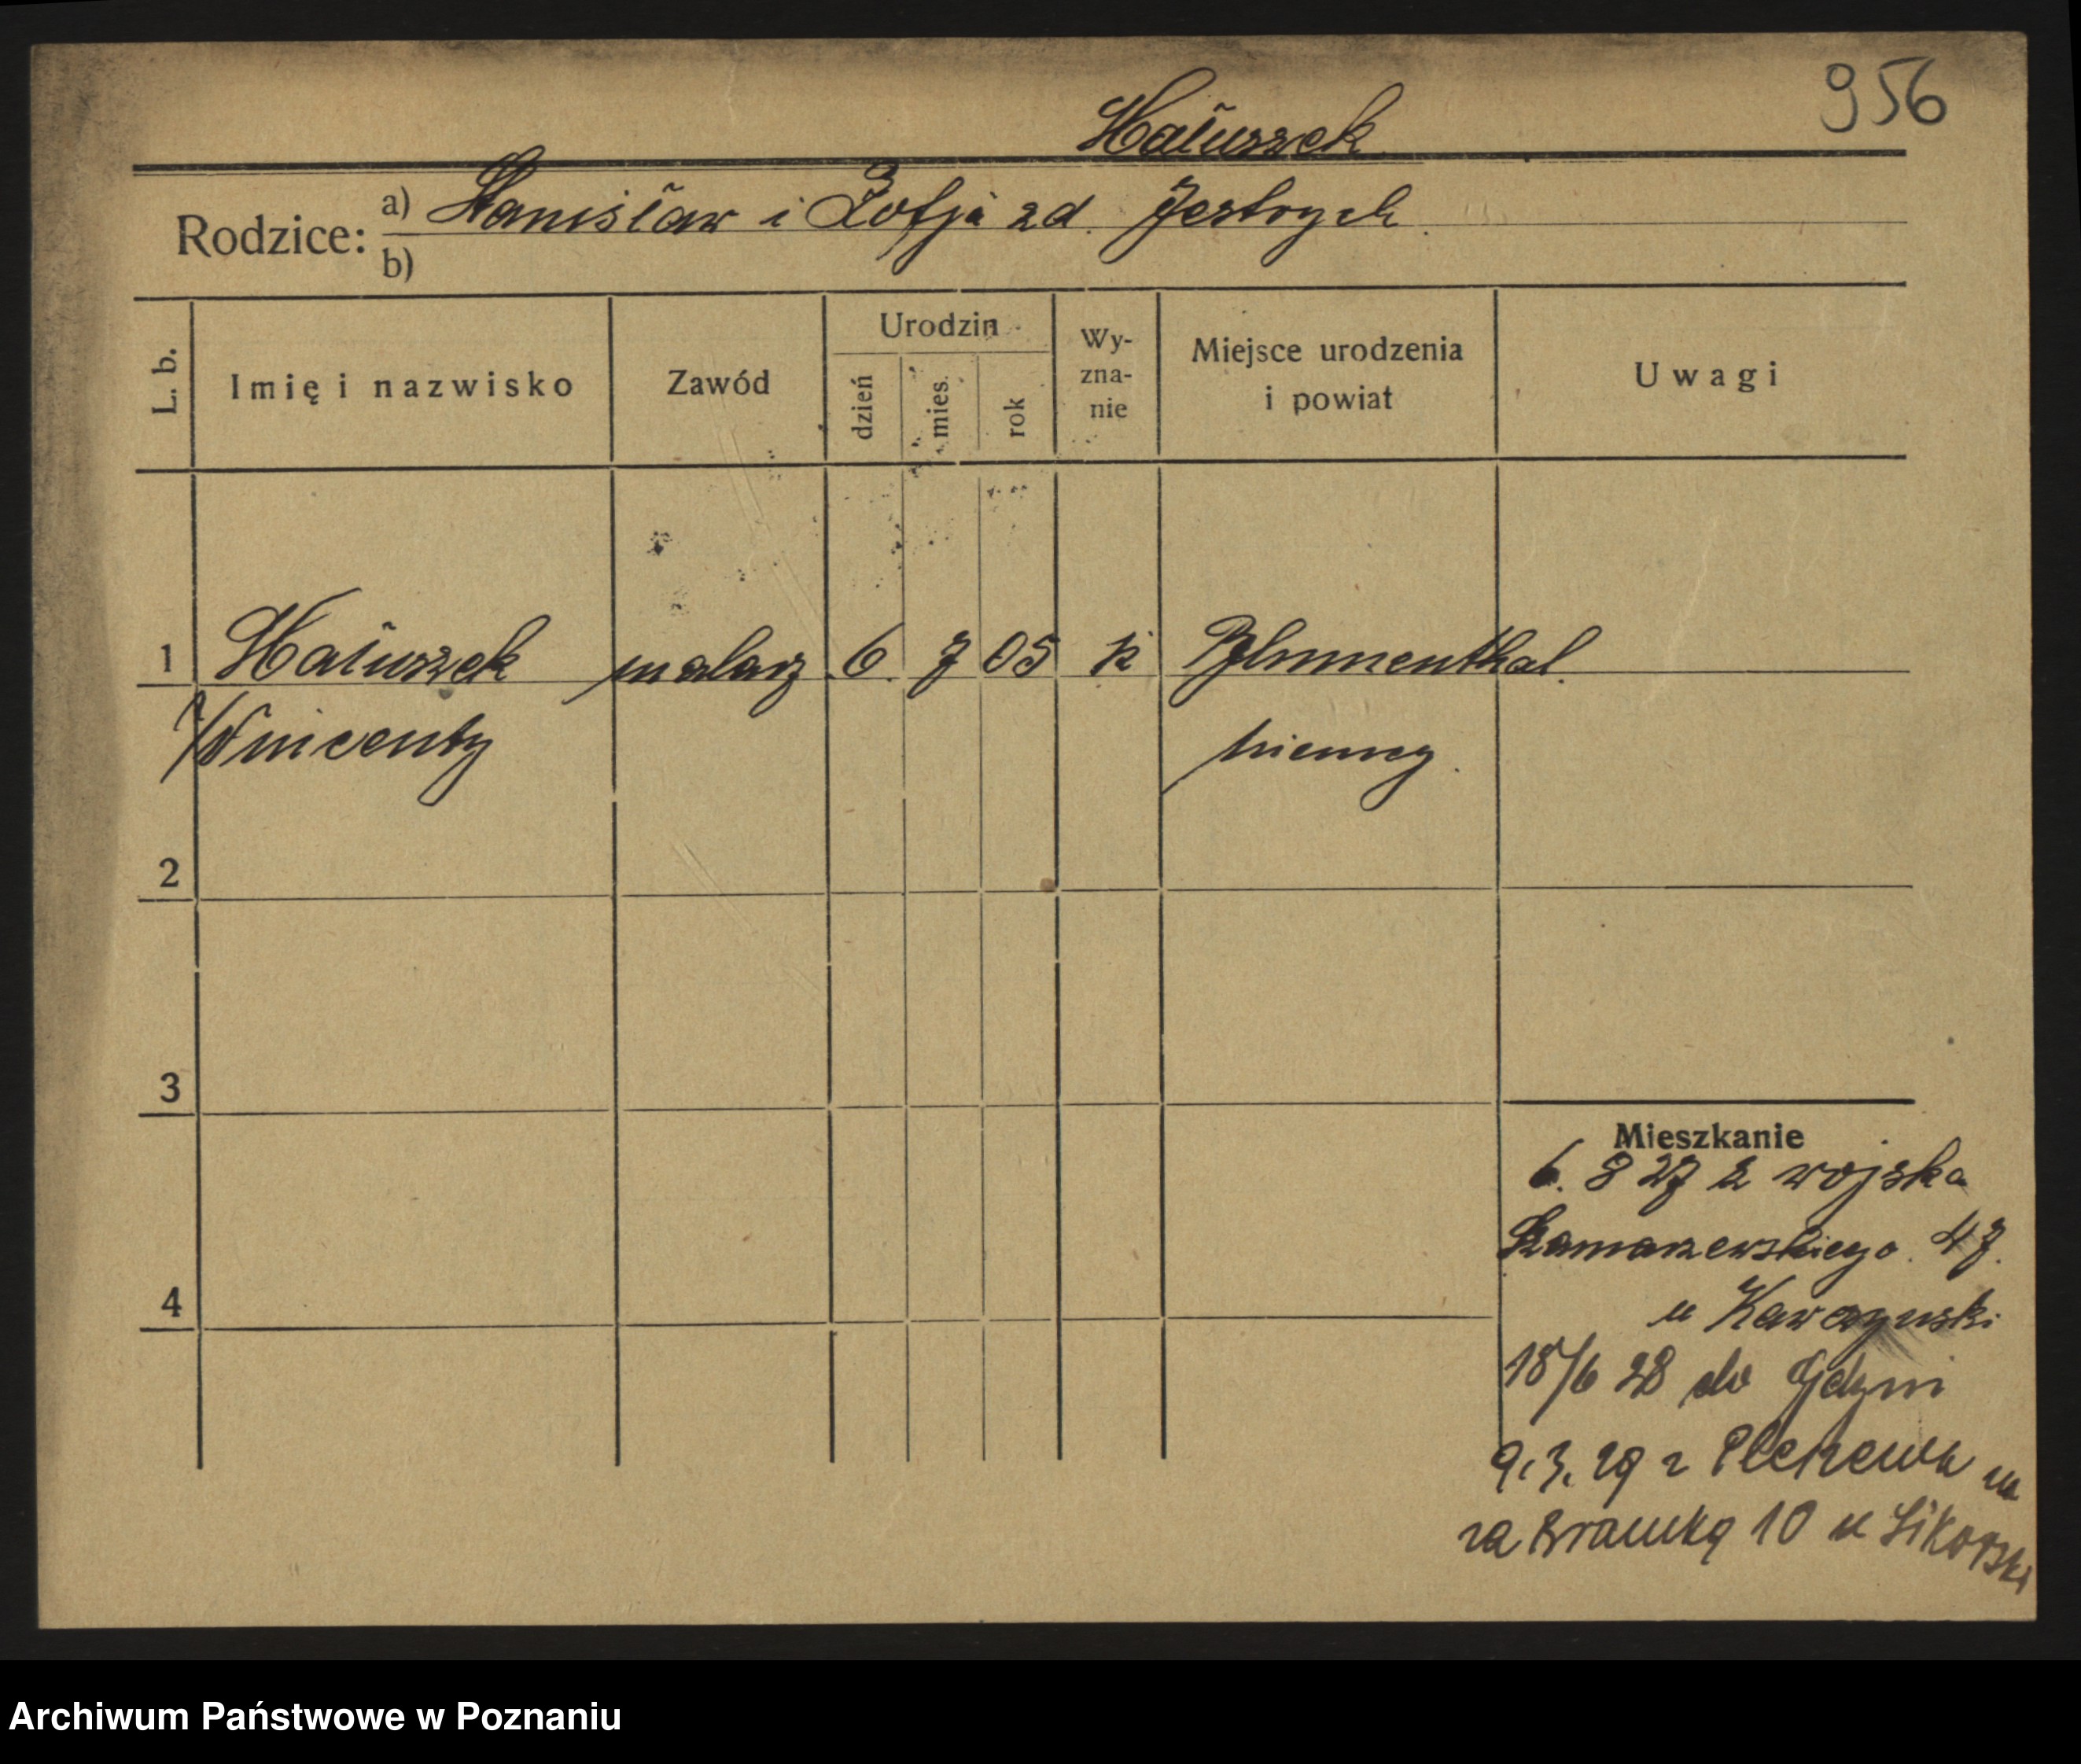 956
Hałuszek
Rodzice: a) Stanisław i Zofja zd. Jestrych
b)
L. b. Imię i nazwisko Zawód Urodzin dzień mies. rok Wy-zna-nie Miejsce urodzenia i powiat Uwagi
1 Hałuszek malarz 6. 7 05 k Blumenthal.
Wincenty niemcy.
2
3
4
Mieszkanie
6. 8 27 z wojska
Szamarzewskiego. 47.
u Kawczyński
18/6 28 do Gdyni
9.3.29 z Pleszewa na
za Bramką 10 u Sikorski
Archiwum Państwowe w Poznaniu